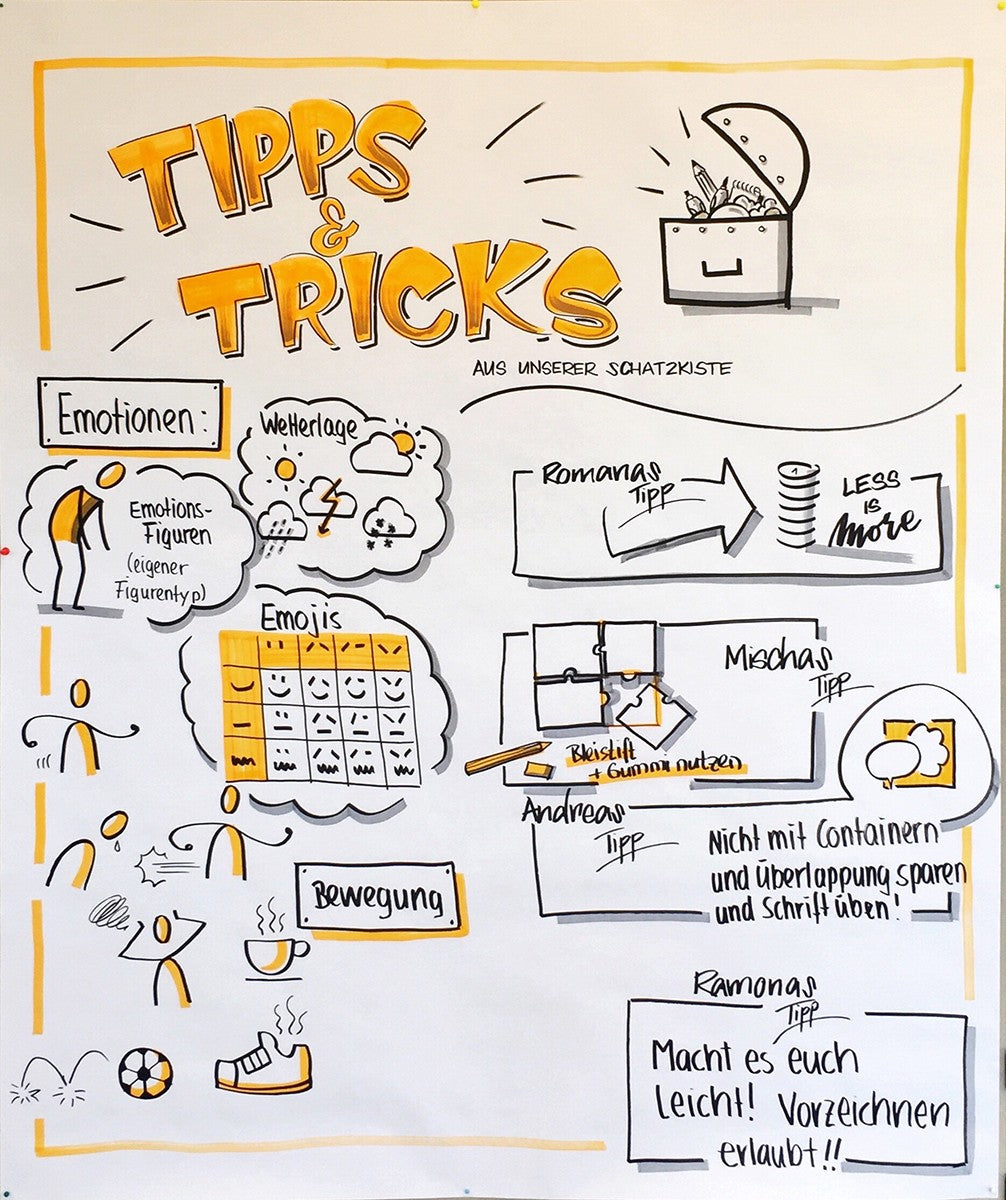 TIPPS
&
TRICKS
AUS UNSERER SCHATZKISTE
Emotionen:
Wetterlage
Emotions-
Figuren
(eigener
Figurentyp)
Emojis
Bewegung
Romanas
Tipp
1
LESS
IS
more
Mischas
Tipp
Bleistift
+ Gummi nutzen
Andreas
Tipp
Nicht mit Containern
und Überlappung sparen
und Schrift üben!
Ramonas
Tipp
Macht es euch
Leicht! Vorzeichnen
erlaubt!!